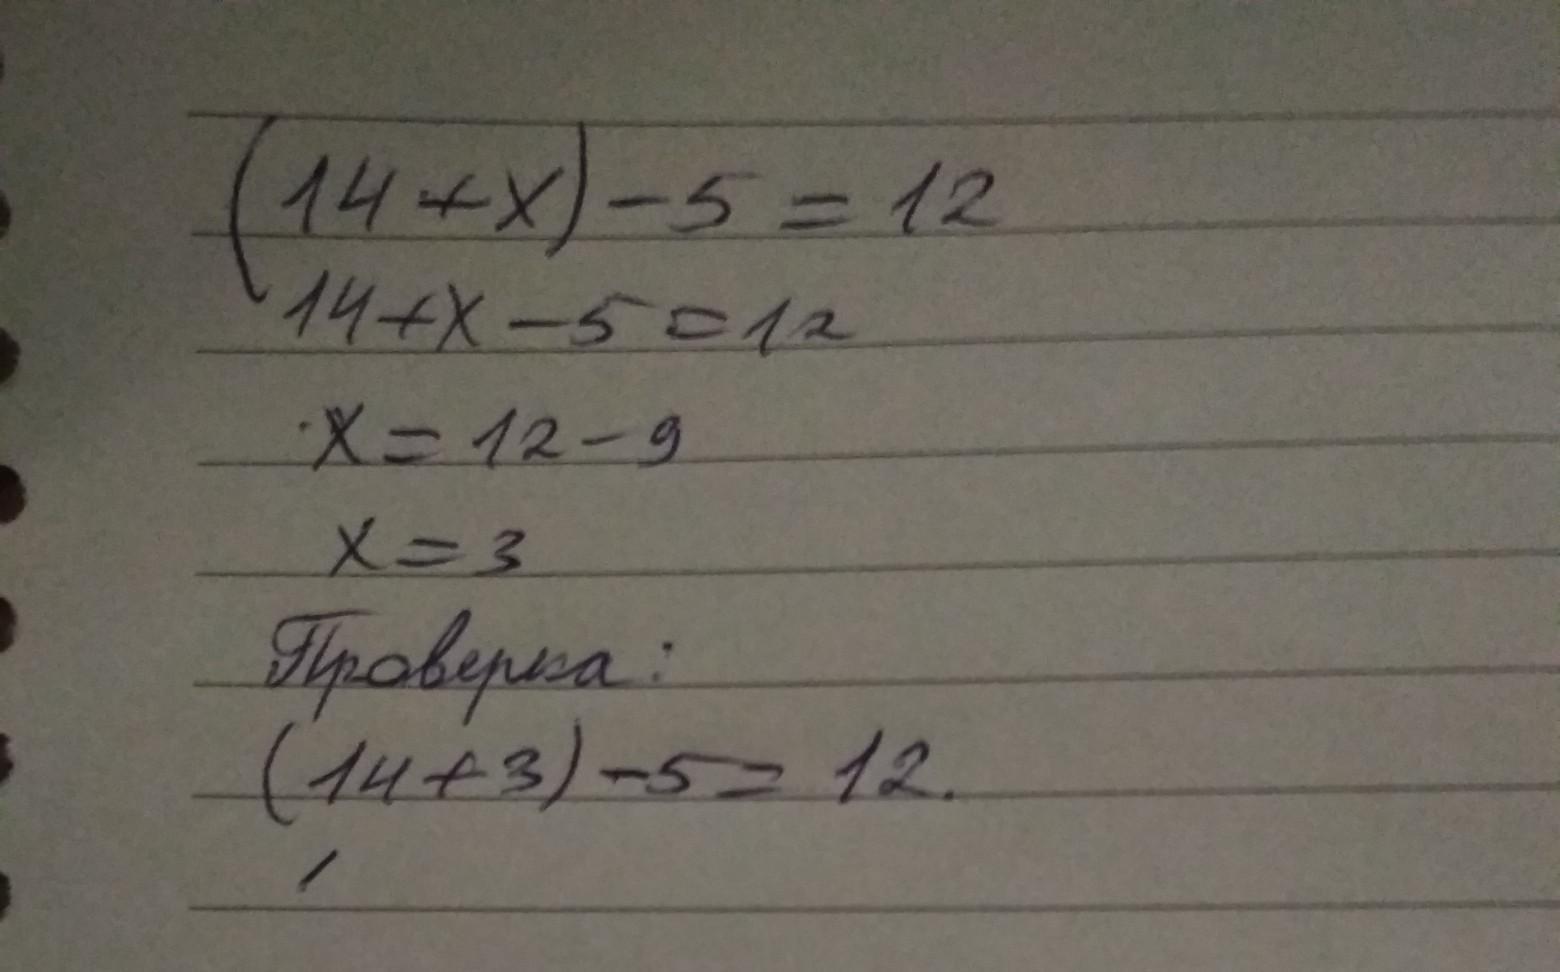 (14+x)-5=12
14+x-5=12
x=12-9
x=3
Проверка:
(14+3)-5=12.